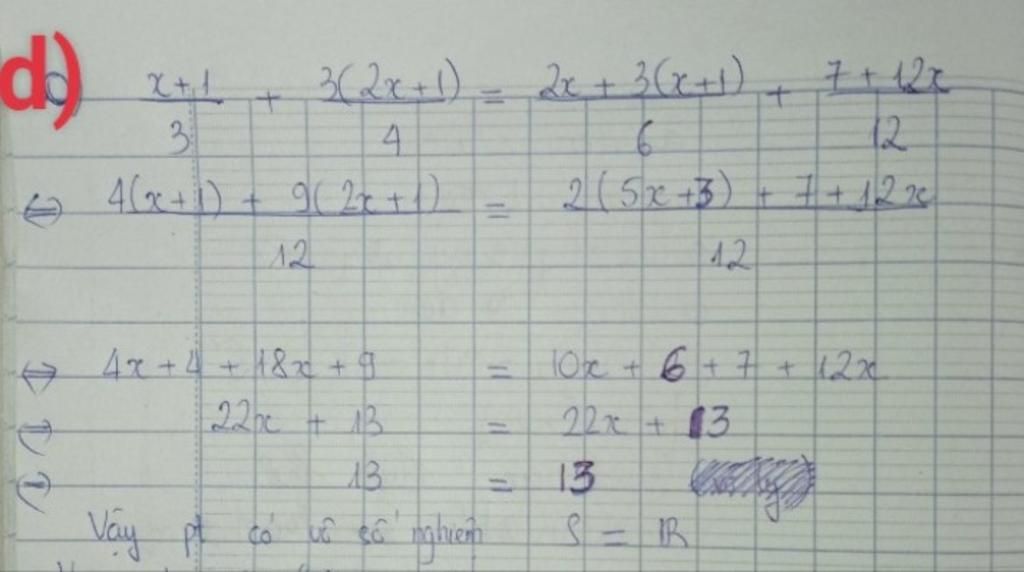 d) x+1/3 + 3(2x+1)/4 = 2x + 3(x+1)/6 + 7 + 12x/12
⇔ 4(x+1) + 9(2x+1)/12 = 2(5x+3) + 7 + 12x/12
⇔ 4x+4 + 18x + 9 = 10x + 6 + 7 + 12x
⇔ 22x + 13 = 22x + 13
⇔ 13 = 13
Vậy pt có vô số nghiệm S = ℝ